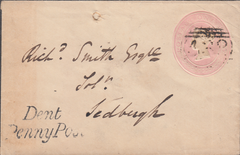 Richd. Smith Esqre
Solr.
Sedbergh
Dent
Penny Post